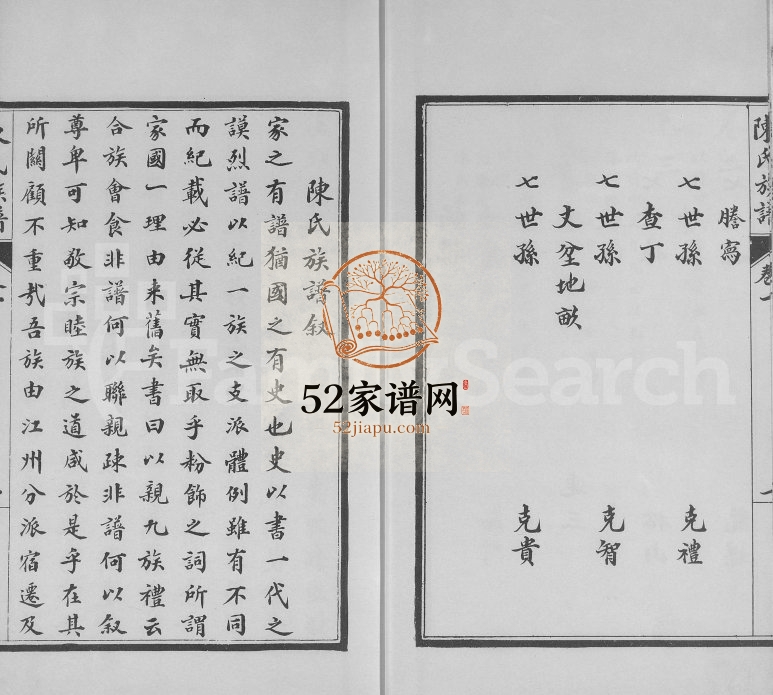 陳氏族譜
卷十
謄寫
七世孫 克禮
查丁
七世孫 克智
丈坌地畝
七世孫 克貴
陳氏族譜敘
家之有譜猶國之有史也史以書一代之
謨烈譜以紀一族之支派體例雖有不同
而紀載必從其實無取乎粉飾之詞所謂
家國一理由来舊矣書曰以親九族禮云
合族會食非譜何以聯親疎非譜何以敘
尊卑可知敬宗睦族之道咸於是乎在其
所關顧不重㢤吾族由江州分派宿遷及
FamilySearch
52家谱网
52jiapu.com